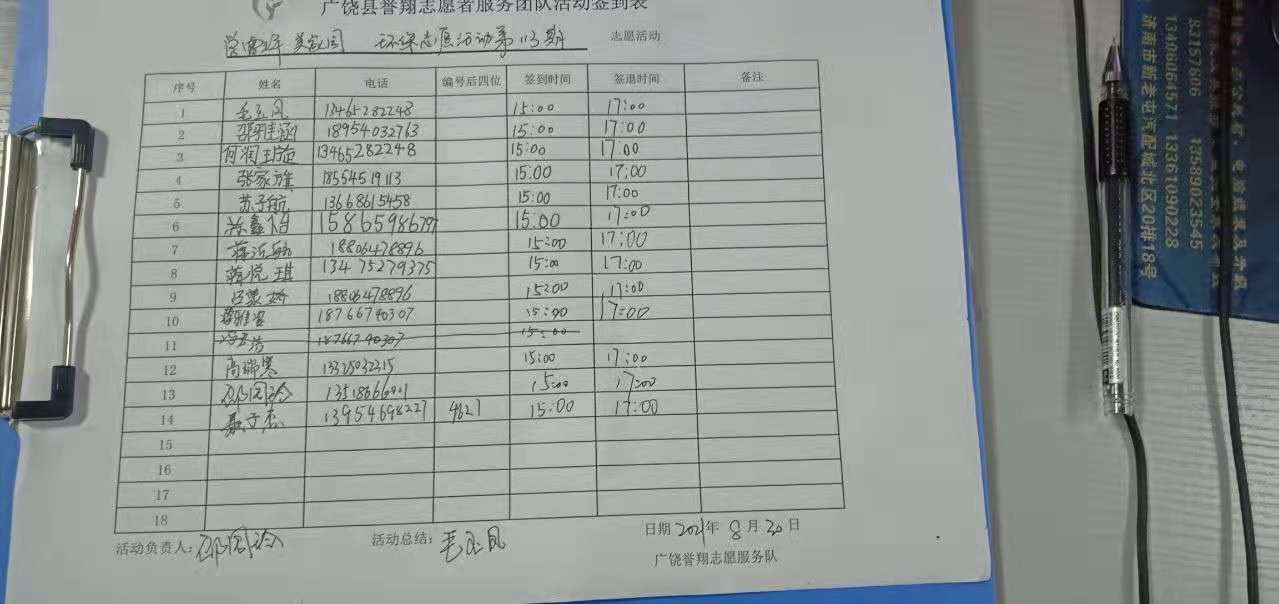 广饶县誉翔志愿者服务团队活动签到表
环保志愿活动第113期 志愿活动
序号 姓名 电话 编号后四位 签到时间 签退时间 备注
1 毛玉凤 13465282248 15:00 17:00
2 18954032763 15:00 17:00
3 何润 13465282248 15:00 17:00
4 张家旗 18554519113 15:00 17:00
5 苏子航 13668615458 15:00 17:00
6 鑫怡 15865986797 15:00 17:00
7 蒋 18806478896 15:00 17:00
8 蒋悦琪 13475279375 15:00 17:00
9 18806478896 15:00 17:00
10 18766740307 15:00 17:00
11 18766740307 15:00
12 高瑞寒 13325032315 15:00 17:00
13 15:00 17:00
14 聂子杰 13954698227 4627 15:00 17:00
15
16
17
18
活动负责人: 活动总结: 毛玉凤 日期 2021年 8月30日
广饶誉翔志愿服务队
83157606 13589023545
13406064571 13361090228
济南市新老屯汽配城北区20排18号